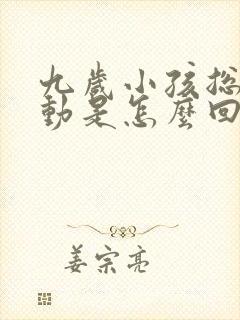 九歲小孩总
動是怎麼回
姜宗亮